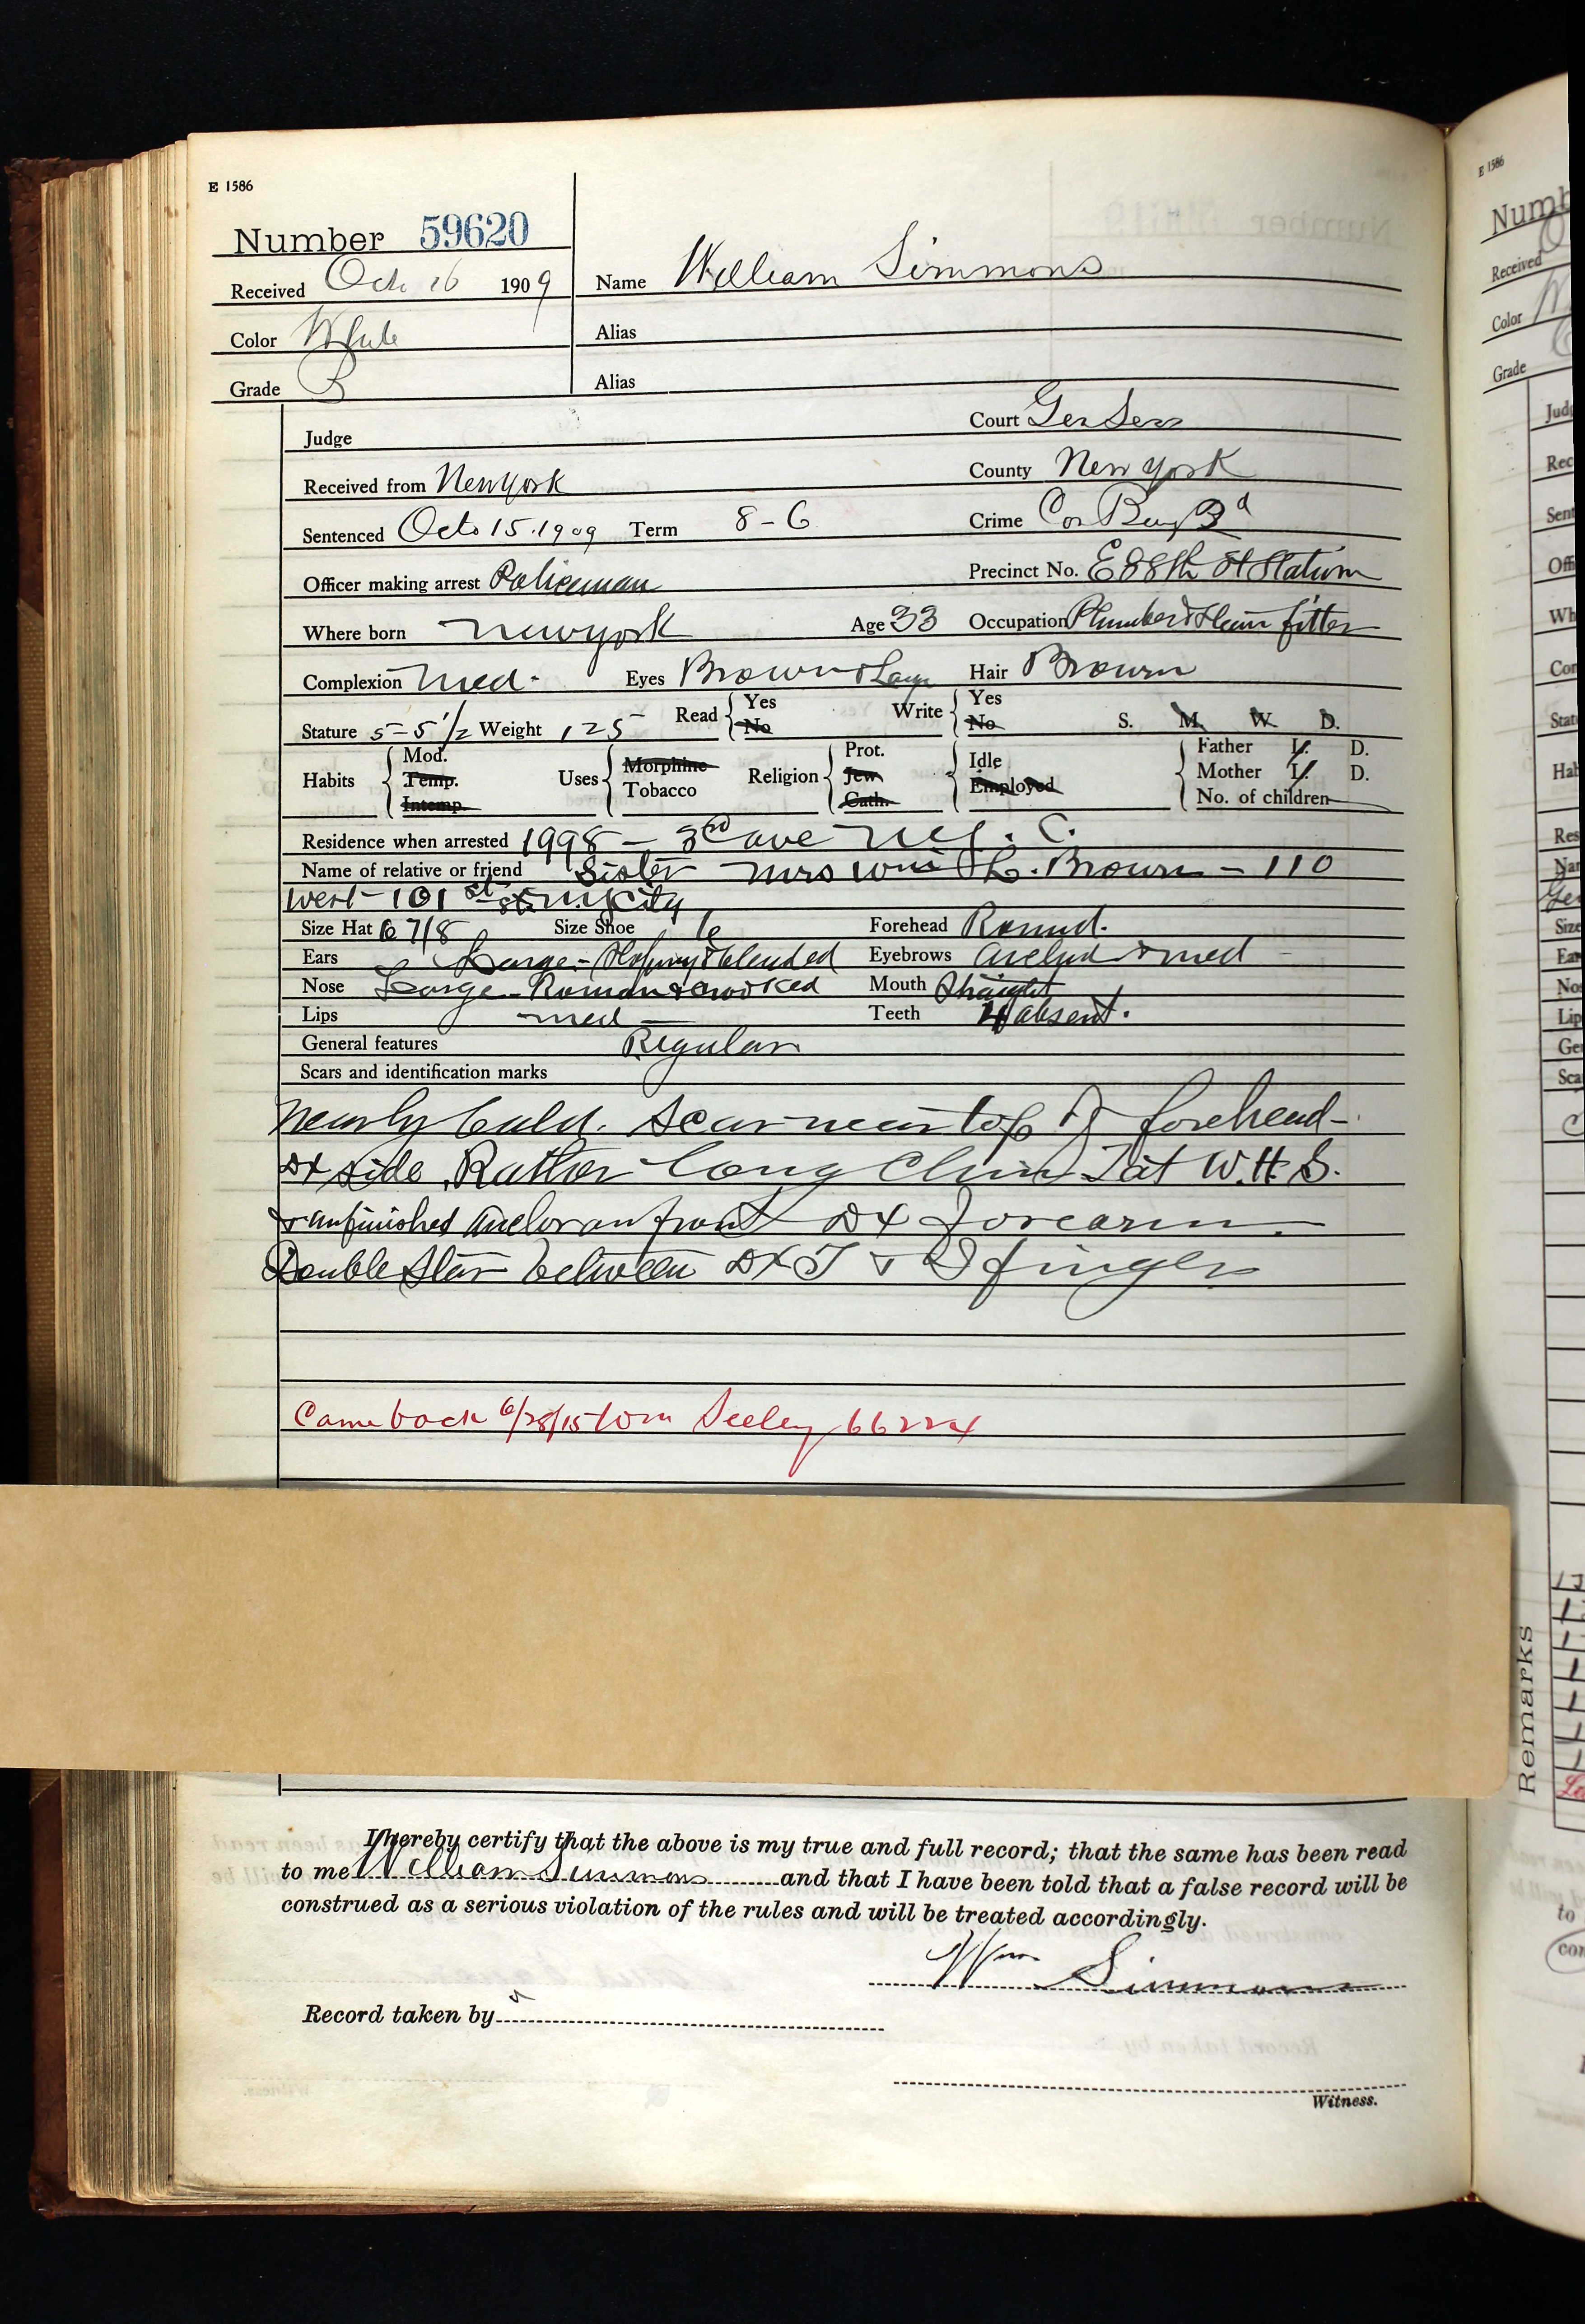 E 1586
Number 59620
Received Oct 16 1909 Name William Simmons
Color White Alias
Grade B Alias
Judge Court Gen Sess
Received from New York County New York
Sentenced Oct 15. 1909 Term 8-6 Crime Con Burg 3d
Officer making arrest Policeman Precinct No. E 88th St Station
Where born New York Age 33 Occupation Plumber & Steam fitter
Complexion Med. Eyes Brown & Hair Brown
Stature 5-5 1/2 Weight 125 Read Yes No Write Yes No S. M. W. D.
Habits Mod. Temp. Intemp. Uses Morphine Tobacco Religion Prot. Jew Cath. Idle Employed Father L. D. Mother L. D. No. of children
Residence when arrested 1998 - 3rd ave N.Y. C.
Name of relative or friend Sister Mrs Wm H. Brown - 110
West 101 st N.Y. City
Size Hat 6 7/8 Size Shoe 6 Forehead Round.
Ears Large - Sloping & blended Eyebrows Arched & med
Nose Large - Roman & crooked Mouth Straight
Lips med Teeth 4 absent.
General features Regular
Scars and identification marks
Nearly bald. Scar near top of forehead -
Dx side. Rather long Chin Tat W.H.S.
& unfinished anchor on front Dx forearm.
Double Star between Dx T & I finger
Came back 6/28/15 Wm Seeley 66224
I hereby certify that the above is my true and full record; that the same has been read
to me William Simmons and that I have been told that a false record will be
construed as a serious violation of the rules and will be treated accordingly.
Wm Simmons
Record taken by
Witness.
E 1586
Numb
Received
Color
Grade
Remarks